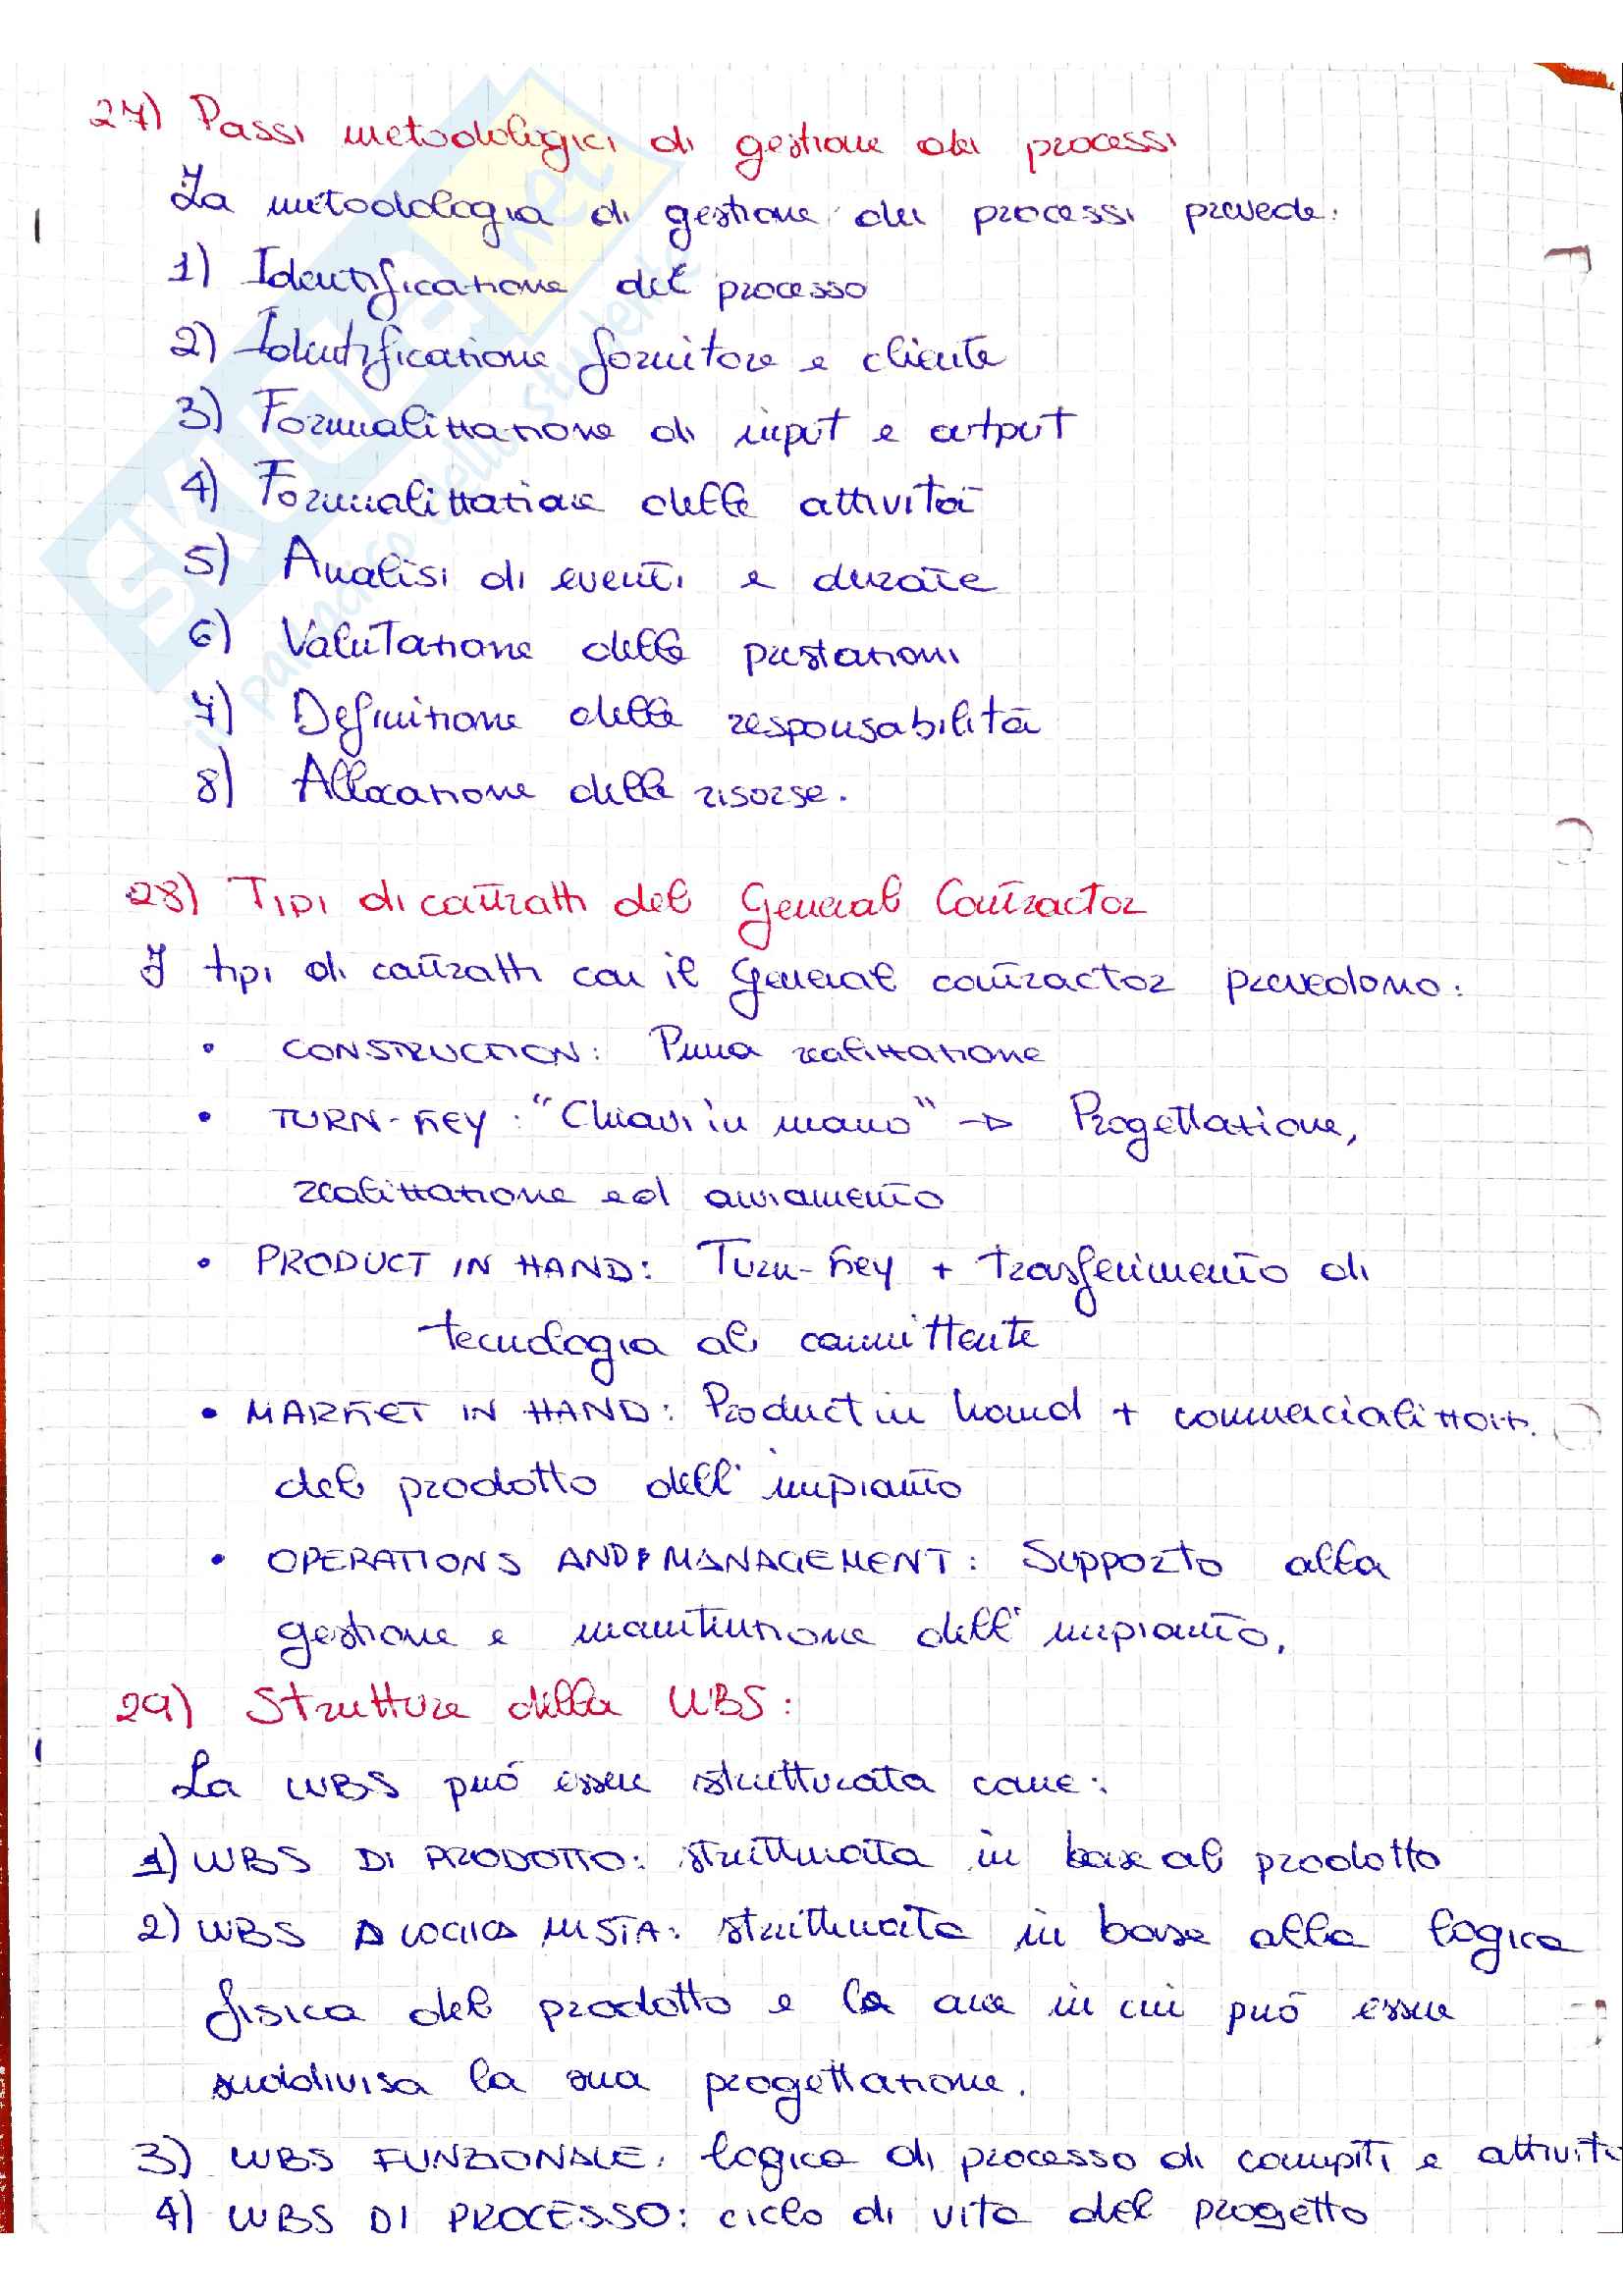 27) Passi metodologici di gestione dei processi
La metodologia di gestione dei processi prevede:
1) Identificazione del processo
2) Identificazione fornitore e cliente
3) Formalizzazione di input e output
4) Formalizzazione delle attività
5) Analisi di eventi e durate
6) Valutazione delle prestazioni
7) Definizione delle responsabilità
8) Allocazione delle risorse.
28) Tipi di contratti del General Contractor
I tipi di contratti con il General contractor prevedono:
• CONSTRUCTION: Pura realizzazione
• TURN-KEY: "Chiavi in mano" → Progettazione,
realizzazione ed avviamento
• PRODUCT IN HAND: Turn-key + trasferimento di
tecnologia al committente
• MARKET IN HAND: Product in hand + commercializzaz.
del prodotto dell'impianto
• OPERATIONS AND MANAGEMENT: Supporto alla
gestione e manutenzione dell'impianto.
29) Strutture della WBS:
La WBS può essere strutturata come:
1) WBS DI PRODOTTO: strutturata in base al prodotto
2) WBS A LOGICA MISTA: strutturata in base alla logica
fisica del prodotto e le aree in cui può essere
suddivisa la sua progettazione.
3) WBS FUNZIONALE: logica di processo di compiti e attività
4) WBS DI PROCESSO: ciclo di vita del progetto
SKUOLA.net